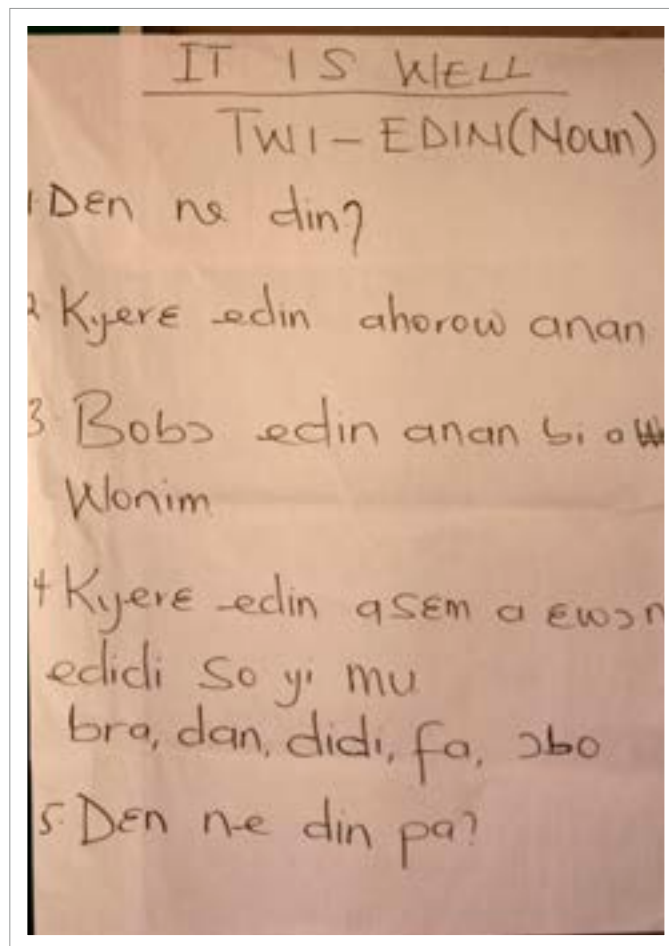 IT IS WELL
TWI – EDIN (Noun)
1 Dɛn ne din?
2 Kyerɛ edin ahorow anan
3 Bobɔ edin anan bi a
Wonim
4 Kyerɛ edin asɛm a ɛwɔ n
edidi so yi mu
bra, dan, didi, fa, ɔbo
5. Dɛn ne din pa?